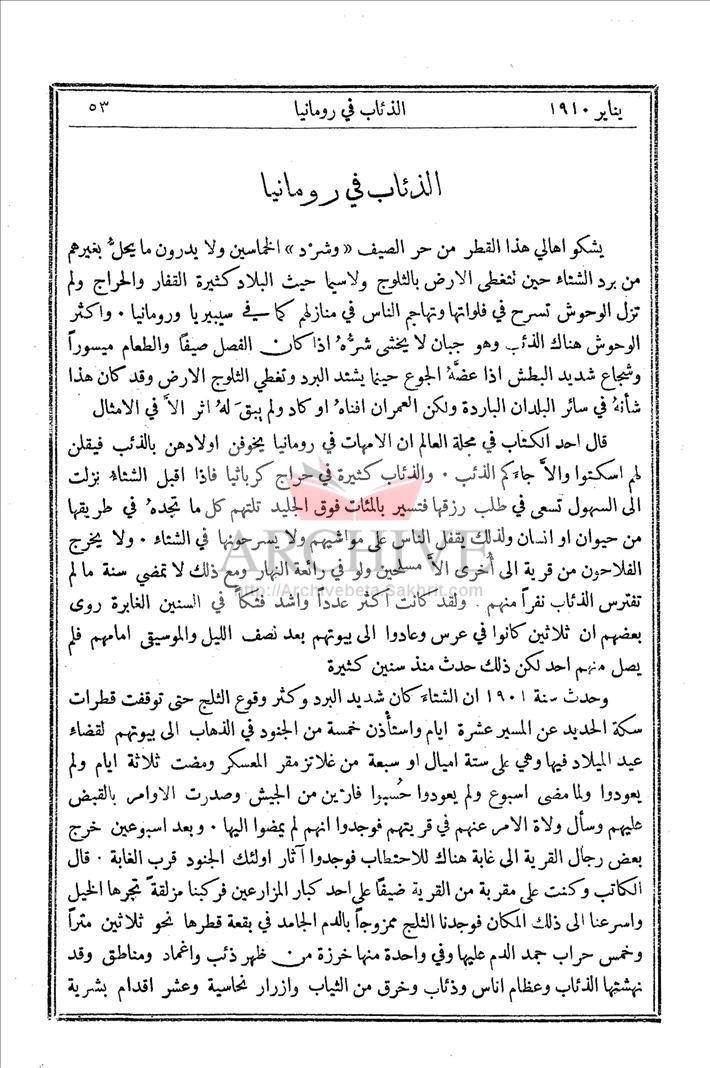 يناير ١٩١٠ الذئاب في رومانيا ٥٣
الذئاب في رومانيا
يشكو اهالي هذا القطر من حر الصيف «وشرْد» الخماسين ولا يدرون ما يحلُّ بغيرهم
من برد الشتاء حين نتغطى الارض بالثلوج ولاسيما حيث البلاد كثيرة القفار والحراج ولم
تزل الوحوش تسرح في فلواتها وتهاجم الناس في منازلهم كما في سيبيريا ورومانيا ٠ واكثر
الوحوش هناك الذئب وهو جبان لا يخشى شرُّهُ اذا كان الفصل صيفًا والطعام ميسوراً
وشجاع شديد البطش اذا عضَّهُ الجوع حينما يشتد البرد وتغطي الثلوج الارض وقد كان هذا
شأنهُ في سائر البلدان الباردة ولكن العمران افناهُ او كاد ولم يبقَ لهُ اثر الاَّ في الامثال
قال احد الكتَّاب في مجلة العالم ان الامهات في رومانيا يخوفن اولادهن بالذئب فيقلن
لم اسكتوا والاَّ جاءَكم الذئب ٠ والذئاب كثيرة في حراج كرباثيا فاذا اقبل الشتاءُ نزلت
الى السهول تسعى في طلب رزقها فتسير بالمئات فوق الجليد تلتهم كل ما تجدهُ في طريقها
من حيوان او انسان ولذلك يقفل الناس على مواشيهم ولا يسرحونها في الشتاء ٠ ولا يخرج
ARCHIVE
الفلاحون من قرية الى أخرى الاَّ مسلحين ولو في رائعة النهار ومع ذلك لا تمضي سنة ما لم
http://Archivebeta.Sakhrit.com
تفترس الذئاب نفراً منهم . ولقد كانت اكثر عدداً واشد فتكاً في السنين الغابرة روى
بعضهم ان ثلاثين كانوا في عرس وعادوا الى بيوتهم بعد نصف الليل والموسيقى امامهم فلم
يصل منهم احد لكن ذلك حدث منذ سنين كثيرة
وحدث سنة ١٩٠١ ان الشتاءَ كان شديد البرد وكثر وقوع الثلج حتى توقفت قطرات
سكة الحديد عن المسير عشرة ايام واستأذن خمسة من الجنود في الذهاب الى بيوتهم لقضاء
عيد الميلاد فيها وهي على ستة اميال او سبعة من غلاتز مقر المعسكر ومضت ثلاثة ايام ولم
يعودوا ولما مضى اسبوع ولم يعودوا حُسبوا فارّين من الجيش وصدرت الاوامر بالقبض
عليهم وسأل ولاة الامر عنهم في قريتهم فوجدوا انهم لم يمضوا اليها ٠ وبعد اسبوعين خرج
بعض رجال القرية الى غابة هناك للاحتطاب فوجدوا آثار اولئك الجنود قرب الغابة ٠ قال
الكاتب وكنت على مقربة من القرية ضيفًا على احد كبار المزارعين فركبنا مزلقةً تجرها الخيل
واسرعنا الى ذلك المكان فوجدنا الثلج ممزوجاً بالدم الجامد في بقعة قطرها نحو ثلاثين متراً
وخمس حراب جمد الدم عليها وفي واحدة منها خرزة من ظهر ذئب واغماد ومناطق وقد
نهشتها الذئاب وعظام اناس وذئاب وخرق من الثياب وازرار نحاسية وعشر اقدام بشرية